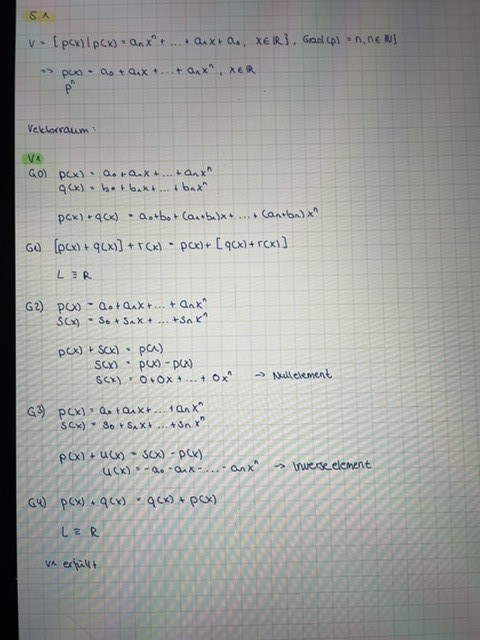 5.1
V = {p(x) | p(x) = aₙxⁿ + ... + a₁x + a₀, x∈ℝ}, Grad(p) = n, n∈ℕ}
=> p(x) = a₀ + a₁x + ... + aₙxⁿ, x∈ℝ
pⁿ
Vektorraum:
V1
G0) p(x) = a₀ + a₁x + ... + aₙxⁿ
q(x) = b₀ + b₁x + ... + bₙxⁿ
p(x) + q(x) = a₀+b₀ + (a₁+b₁)x + ... + (aₙ+bₙ)xⁿ
G1) [p(x) + q(x)] + r(x) = p(x) + [q(x) + r(x)]
L ≡ R
G2) p(x) = a₀ + a₁x + ... + aₙxⁿ
s(x) = s₀ + s₁x + ... + sₙxⁿ
p(x) + s(x) = p(x)
s(x) = p(x) - p(x)
s(x) = 0 + 0x + ... + 0xⁿ -> Nullelement
G3) p(x) = a₀ + a₁x + ... + aₙxⁿ
s(x) = s₀ + s₁x + ... + sₙxⁿ
p(x) + u(x) = s(x) - p(x)
u(x) = -a₀ - a₁x - ... - aₙxⁿ -> Inverse element
G4) p(x) + q(x) = q(x) + p(x)
L ≡ R
V1 erfüllt